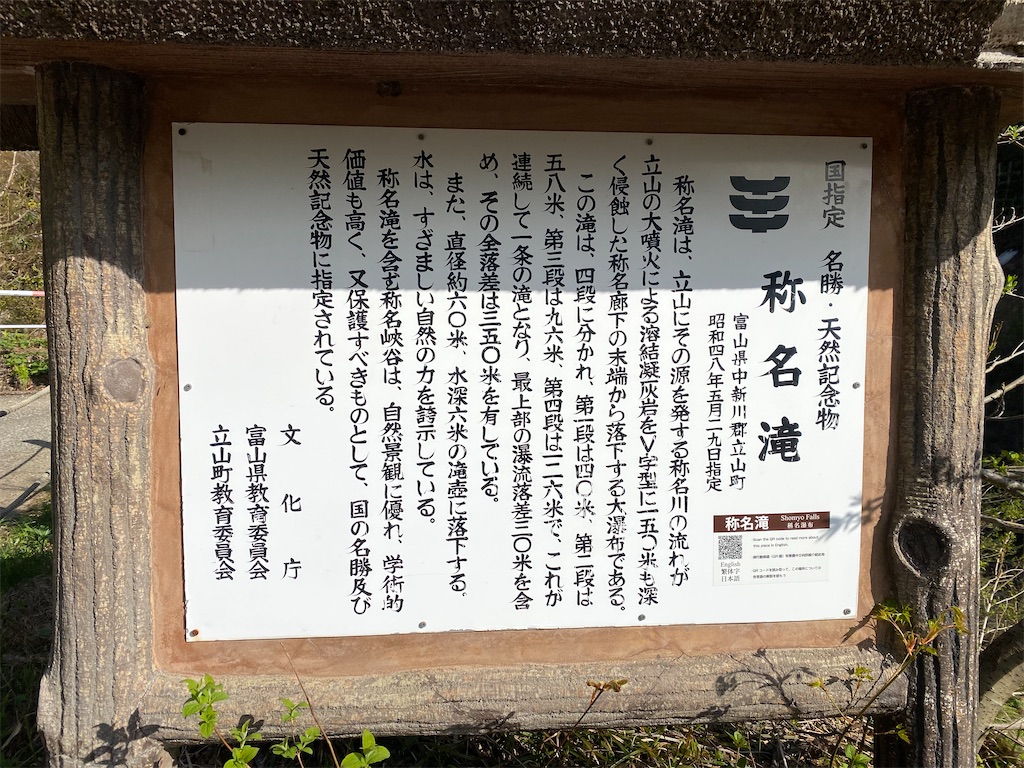 国指定 名勝・天然記念物
称名滝
富山県中新川郡立山町
昭和四八年五月二九日指定
称名滝は、立山にその源を発する称名川の流れが
立山の大噴火による溶結凝灰岩をV字型に二五〇米も深
く侵蝕した称名廊下の末端から落下する大瀑布である。
この滝は、四段に分かれ、第一段は四〇米、第二段は
五八米、第三段は九六米、第四段は一二六米で、これが
連続して一条の滝となり、最上部の瀑流落差三〇米を含
め、その全落差は三五〇米を有している。
また、直径約六〇米、水深六米の滝壺に落下する。
水は、すざましい自然の力を誇示している。
称名滝を含む称名峡谷は、自然景観に優れ、学術的
価値も高く、又保護すべきものとして、国の名勝及び
天然記念物に指定されている。
文化庁
富山県教育委員会
立山町教育委員会
称名滝
Shomyo Falls
稱名瀑布
Scan the QR code to read more about
this place in English.
English
繁体字
日本語